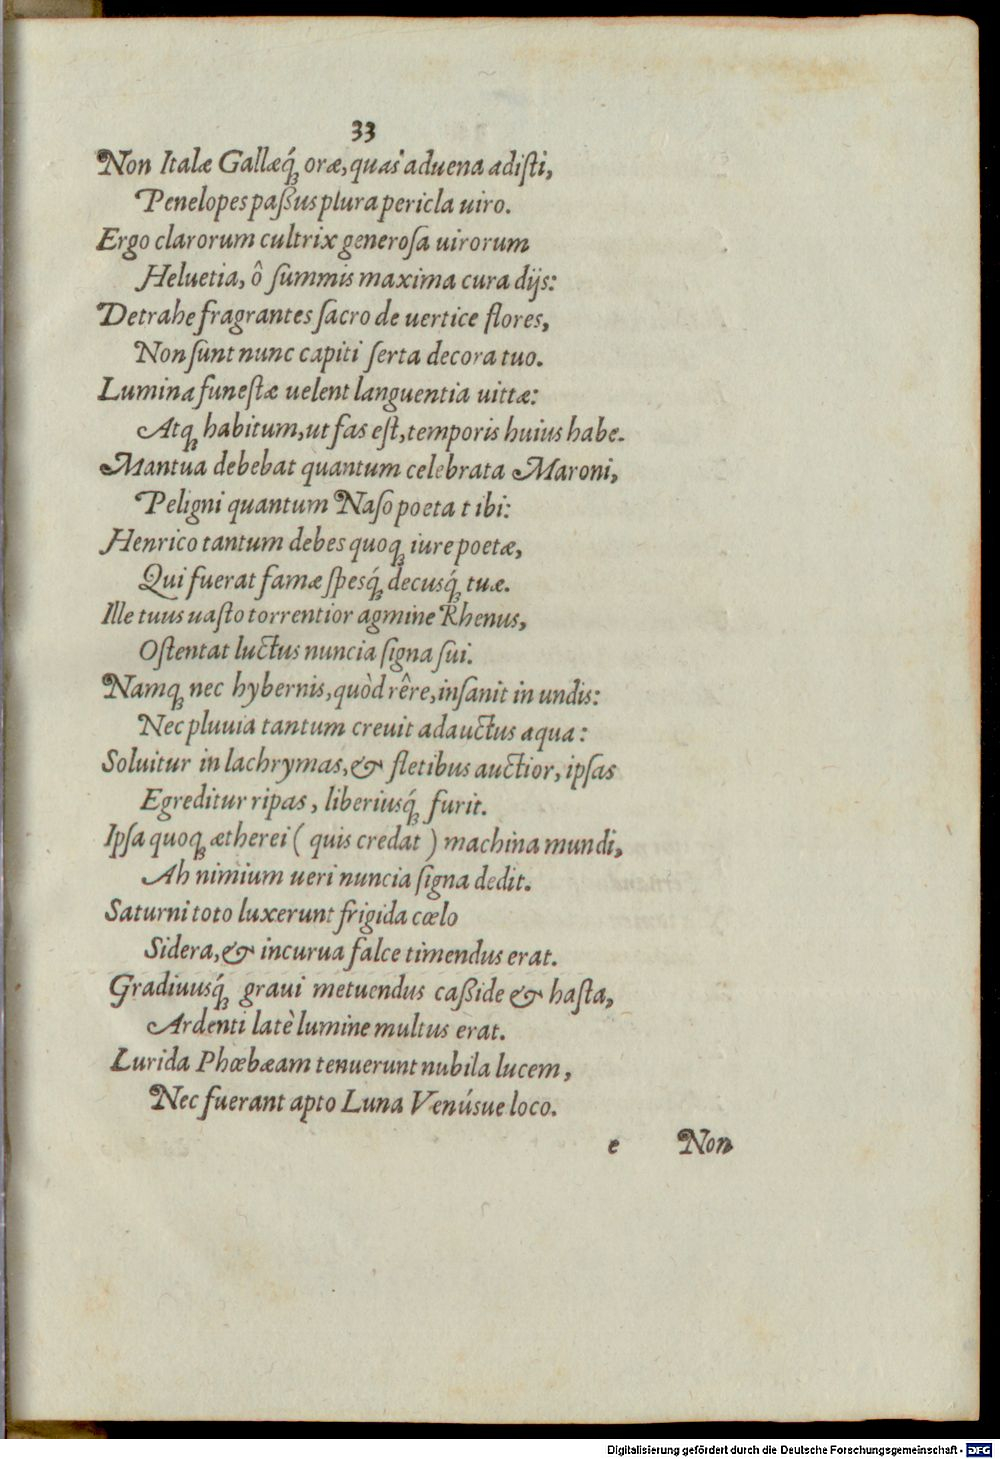 33
Non Italæ Gallæq́ꝫ oræ, quas aduena adiſti,
Penelopes paßus plura pericla uiro.
Ergo clarorum cultrix generoſa uirorum
Heluetia, ô ſummis maxima cura dijs:
Detrahe fragrantes ſacro de uertice flores,
Non ſunt nunc capiti ſerta decora tuo.
Lumina funeſtæ uelent languentia uittæ:
Atqꝫ habitum, ut fas eſt, temporis huius habe.
Mantua debebat quantum celebrata Maroni,
Peligni quantum Naſo poeta tibi:
Henrico tantum debes quoqꝫ iure poetæ,
Qui fuerat famæ ſpesq́ꝫ decusq́ꝫ tuæ.
Ille tuus uaſto torrentior agmine Rhenus,
Oſtentat luctus nuncia ſigna ſui.
Namqꝫ nec hybernis, quòd rêre, inſanit in undis:
Nec pluuia tantum creuit adauctus aqua:
Soluitur in lachrymas, & fletibus auctior, ipſas
Egreditur ripas, liberiusq́ꝫ furit.
Ipſa quoqꝫ ætherei ( quis credat ) machina mundi,
Ah nimium ueri nuncia ſigna dedit.
Saturni toto luxerunt frigida cœlo
Sidera, & incurua falce timendus erat.
Gradiuusq́ꝫ graui metuendus caßide & haſta,
Ardenti latè lumine multus erat.
Lurida Phœbæam tenuerunt nubila lucem,
Nec fuerant apto Luna Venúsue loco.
e Non
Digitalisierung gefördert durch die Deutsche Forschungsgemeinschaft - DFG